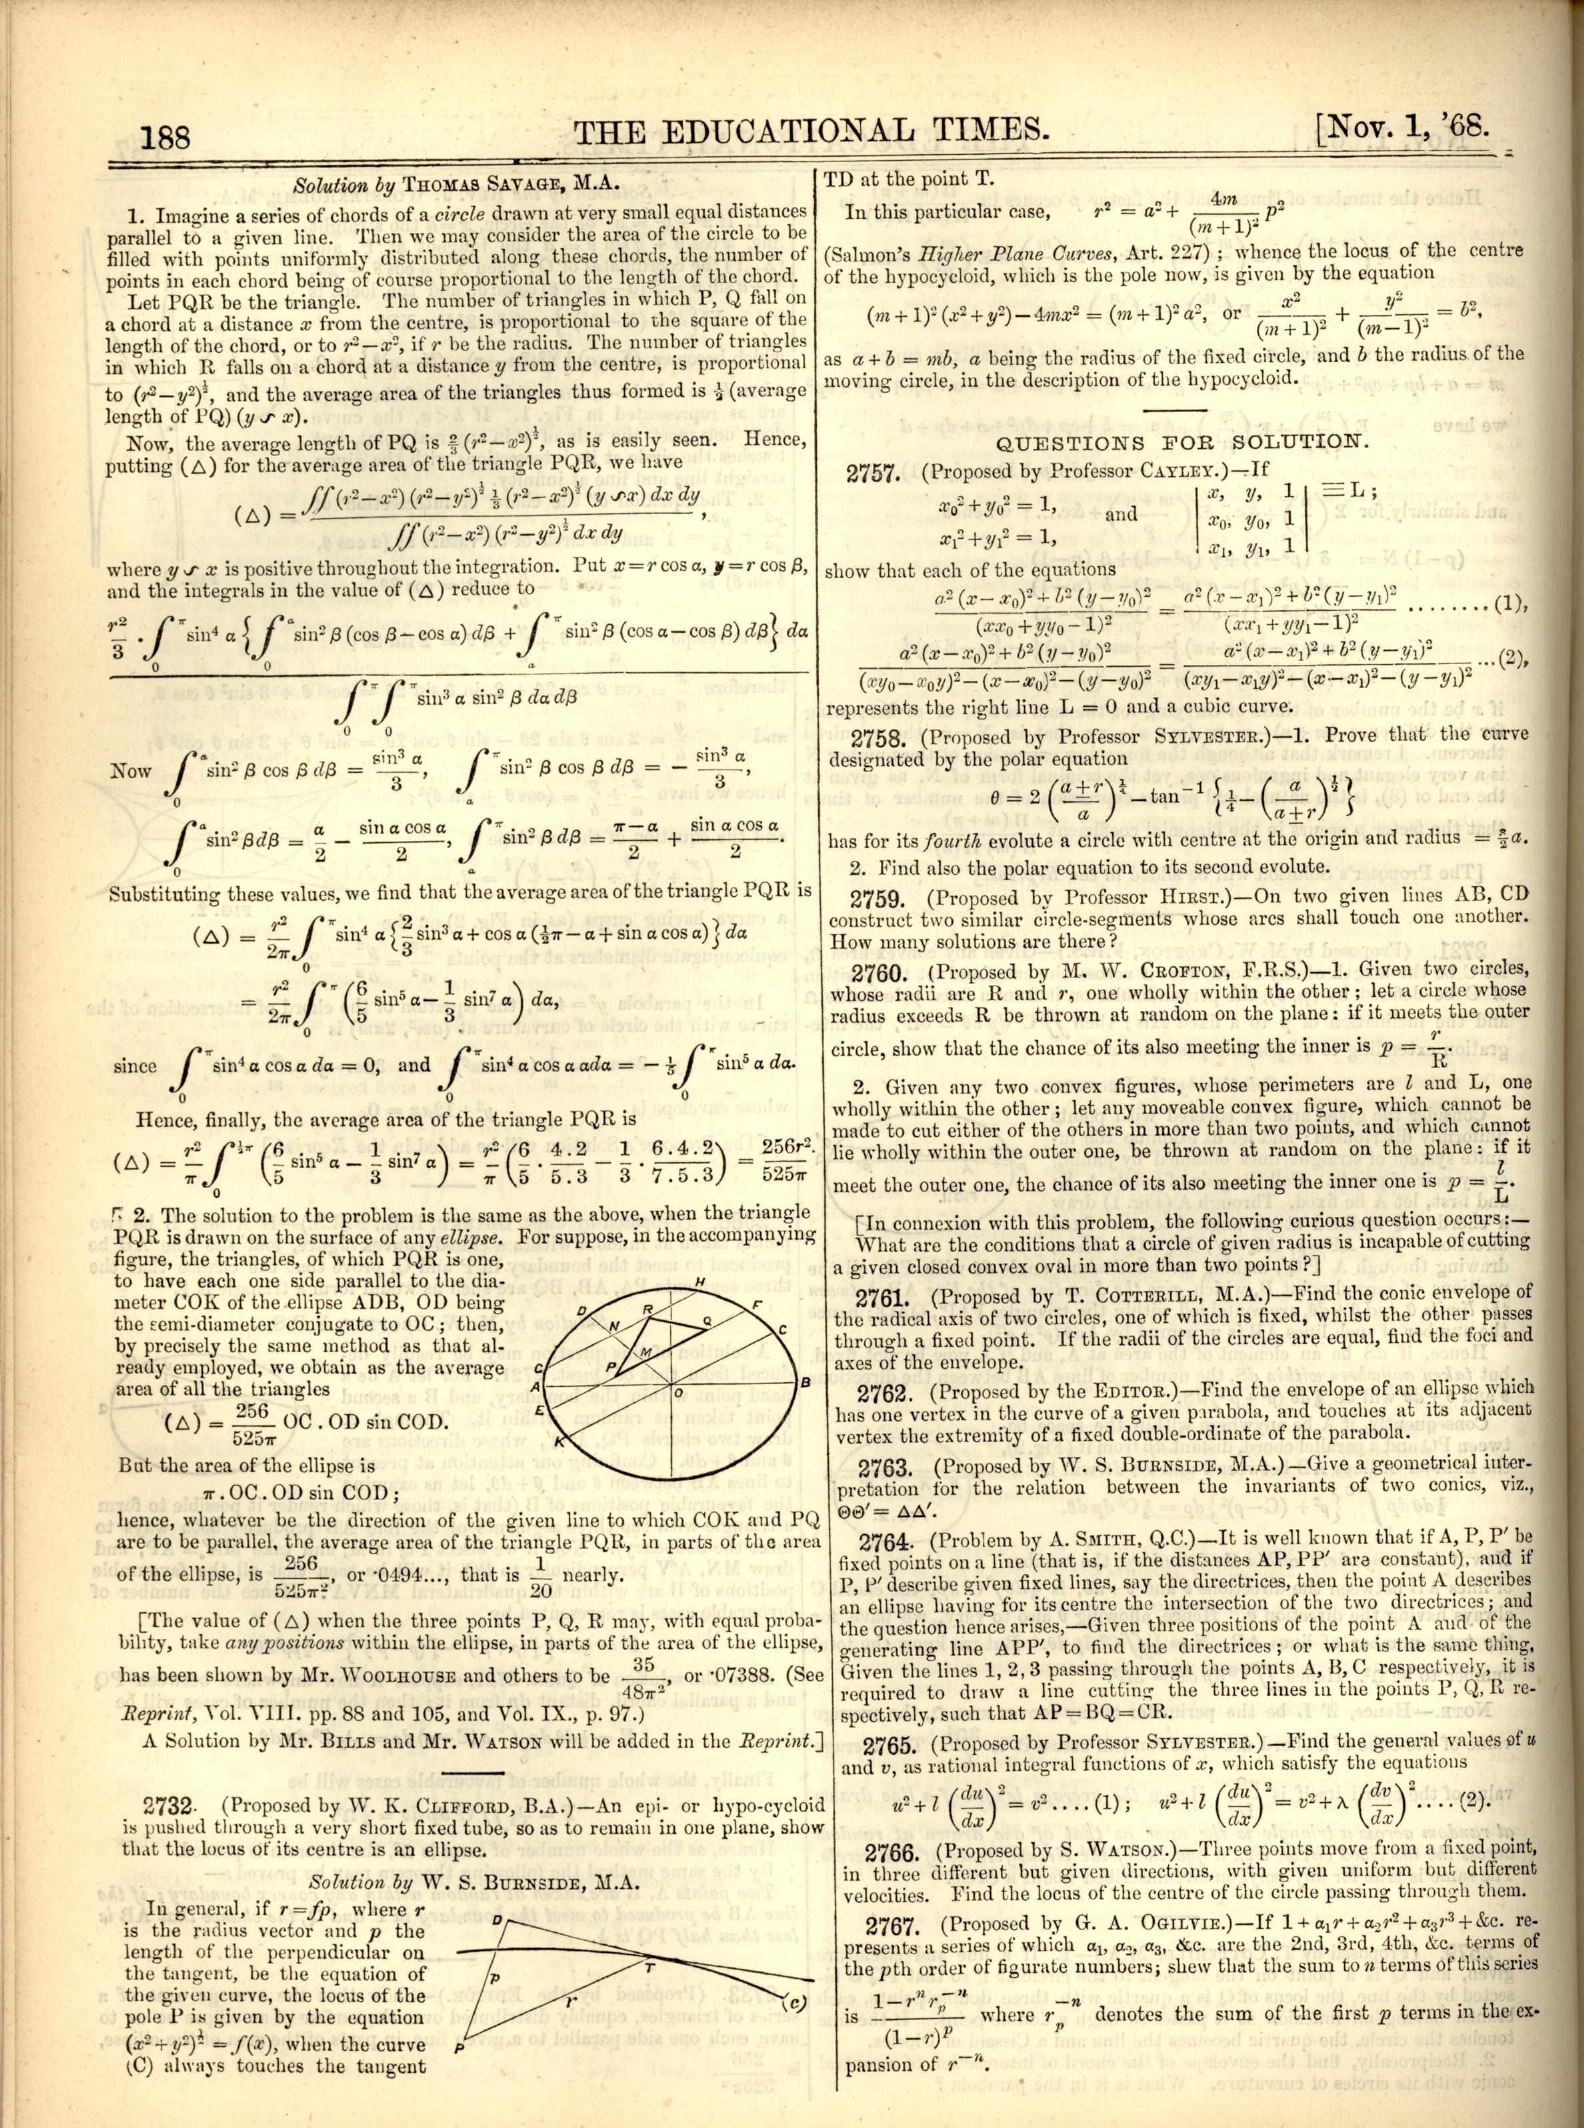 188
THE EDUCATIONAL TIMES.
[Nov. 1, '68.
Solution by THOMAS SAVAGE, M.A.
1. Imagine a series of chords of a circle drawn at very small equal distances
parallel to a given line. Then we may consider the area of the circle to be
filled with points uniformly distributed along these chords, the number of
points in each chord being of course proportional to the length of the chord.
Let PQR be the triangle. The number of triangles in which P, Q fall on
a chord at a distance x from the centre, is proportional to the square of the
length of the chord, or to r²—x², if r be the radius. The number of triangles
in which R falls on a chord at a distance y from the centre, is proportional
to (r²—y²)^½, and the average area of the triangles thus formed is ½ (average
length of PQ) (y ∽ x).
Now, the average length of PQ is ⅔ (r²—x²)^½, as is easily seen. Hence,
putting (△) for the average area of the triangle PQR, we have
(△) = ∬(r²—x²) (r²—y²)^½ ⅓ (r²—x²)^½ (y ∽ x) dx dy / ∬(r²—x²) (r²—y²)^½ dx dy ,
where y ∽ x is positive throughout the integration. Put x = r cos α, y = r cos β,
and the integrals in the value of (△) reduce to
r²/3 . ∫₀^π sin⁴ α { ∫₀^α sin² β (cos β — cos α) dβ + ∫_α^π sin² β (cos α — cos β) dβ } dα
∫₀^π ∫₀^π sin³ α sin² β dα dβ
Now ∫₀^α sin² β cos β dβ = sin³ α / 3, ∫_α^π sin² β cos β dβ = — sin³ α / 3,
∫₀^α sin² β dβ = α/2 — sin α cos α / 2, ∫_α^π sin² β dβ = (π—α)/2 + sin α cos α / 2.
Substituting these values, we find that the average area of the triangle PQR is
(△) = r²/2π ∫₀^π sin⁴ α { 2/3 sin³ α + cos α (½π — α + sin α cos α) } dα
= r²/2π ∫₀^π ( 6/5 sin⁵ α — 1/3 sin⁷ α ) dα,
since ∫₀^π sin⁴ α cos α dα = 0, and ∫₀^π sin⁴ α cos α αdα = — ⅕ ∫₀^π sin⁵ α dα.
Hence, finally, the average area of the triangle PQR is
(△) = r²/π ∫₀^½π ( 6/5 sin⁵ α — 1/3 sin⁷ α ) = r²/π ( 6/5 . 4.2/5.3 — 1/3 . 6.4.2/7.5.3 ) = 256r²/525π.
2. The solution to the problem is the same as the above, when the triangle
PQR is drawn on the surface of any ellipse. For suppose, in the accompanying
figure, the triangles, of which PQR is one,
to have each one side parallel to the dia-
meter COK of the ellipse ADB, OD being
the semi-diameter conjugate to OC; then,
by precisely the same method as that al-
ready employed, we obtain as the average
area of all the triangles
(△) = 256/525π OC . OD sin COD.
But the area of the ellipse is
π . OC . OD sin COD;
H
D
R
F
N
Q
C
M
G
P
A
O
B
E
K
hence, whatever be the direction of the given line to which COK and PQ
are to be parallel, the average area of the triangle PQR, in parts of the area
of the ellipse, is 256/525π², or ·0494..., that is 1/20 nearly.
[The value of (△) when the three points P, Q, R may, with equal proba-
bility, take any positions within the ellipse, in parts of the area of the ellipse,
has been shown by Mr. WOOLHOUSE and others to be 35/48π², or ·07388. (See
Reprint, Vol. VIII. pp. 88 and 105, and Vol. IX., p. 97.)
A Solution by Mr. BILLS and Mr. WATSON will be added in the Reprint.]
2732. (Proposed by W. K. CLIFFORD, B.A.)—An epi- or hypo-cycloid
is pushed through a very short fixed tube, so as to remain in one plane, show
that the locus of its centre is an ellipse.
Solution by W. S. BURNSIDE, M.A.
In general, if r = fp, where r
is the radius vector and p the
length of the perpendicular on
the tangent, be the equation of
the given curve, the locus of the
pole P is given by the equation
(x² + y²)^½ = f(x), when the curve
(C) always touches the tangent
D
T
p
r
(C)
P
TD at the point T.
In this particular case, r² = a² + 4m/(m+1)² p²
(Salmon's Higher Plane Curves, Art. 227); whence the locus of the centre
of the hypocycloid, which is the pole now, is given by the equation
(m+1)² (x² + y²) — 4mx² = (m+1)² a², or x²/(m+1)² + y²/(m—1)² = b²,
as a + b = mb, a being the radius of the fixed circle, and b the radius of the
moving circle, in the description of the hypocycloid.
QUESTIONS FOR SOLUTION.
2757. (Proposed by Professor CAYLEY.)—If
x₀² + y₀² = 1,
x₁² + y₁² = 1,
and
| x, y, 1 | ≡ L;
| x₀, y₀, 1 |
| x₁, y₁, 1 |
show that each of the equations
a² (x—x₀)² + b² (y—y₀)² / (xx₀ + yy₀ — 1)² = a² (x—x₁)² + b² (y—y₁)² / (xx₁ + yy₁ — 1)² ........(1),
a² (x—x₀)² + b² (y—y₀)² / (xy₀—x₀y)² — (x—x₀)² — (y—y₀)² = a² (x—x₁)² + b² (y—y₁)² / (xy₁—x₁y)² — (x—x₁)² — (y—y₁)² ...(2),
represents the right line L = 0 and a cubic curve.
2758. (Proposed by Professor SYLVESTER.)—1. Prove that the curve
designated by the polar equation
θ = 2 ( (a±r)/a )^½ — tan⁻¹ { ¼ — ( a/(a±r) )^½ }
has for its fourth evolute a circle with centre at the origin and radius = ⅔a.
2. Find also the polar equation to its second evolute.
2759. (Proposed by Professor HIRST.)—On two given lines AB, CD
construct two similar circle-segments whose arcs shall touch one another.
How many solutions are there?
2760. (Proposed by M. W. CROFTON, F.R.S.)—1. Given two circles,
whose radii are R and r, one wholly within the other; let a circle whose
radius exceeds R be thrown at random on the plane: if it meets the outer
circle, show that the chance of its also meeting the inner is p = r/R.
2. Given any two convex figures, whose perimeters are l and L, one
wholly within the other; let any moveable convex figure, which cannot be
made to cut either of the others in more than two points, and which cannot
lie wholly within the outer one, be thrown at random on the plane: if it
meet the outer one, the chance of its also meeting the inner one is p = l/L.
[In connexion with this problem, the following curious question occurs:—
What are the conditions that a circle of given radius is incapable of cutting
a given closed convex oval in more than two points?]
2761. (Proposed by T. COTTERILL, M.A.)—Find the conic envelope of
the radical axis of two circles, one of which is fixed, whilst the other passes
through a fixed point. If the radii of the circles are equal, find the foci and
axes of the envelope.
2762. (Proposed by the EDITOR.)—Find the envelope of an ellipse which
has one vertex in the curve of a given parabola, and touches at its adjacent
vertex the extremity of a fixed double-ordinate of the parabola.
2763. (Proposed by W. S. BURNSIDE, M.A.)—Give a geometrical inter-
pretation for the relation between the invariants of two conics, viz.,
ΘΘ′ = ΔΔ′.
2764. (Problem by A. SMITH, Q.C.)—It is well known that if A, P, P′ be
fixed points on a line (that is, if the distances AP, PP′ are constant), and if
P, P′ describe given fixed lines, say the directrices, then the point A describes
an ellipse having for its centre the intersection of the two directrices; and
the question hence arises,—Given three positions of the point A and of the
generating line APP′, to find the directrices; or what is the same thing,
Given the lines 1, 2, 3 passing through the points A, B, C respectively, it is
required to draw a line cutting the three lines in the points P, Q, R re-
spectively, such that AP = BQ = CR.
2765. (Proposed by Professor SYLVESTER.)—Find the general values of u
and v, as rational integral functions of x, which satisfy the equations
u² + l (du/dx)² = v² .... (1); u² + l (du/dx)² = v² + λ (dv/dx)² .... (2).
2766. (Proposed by S. WATSON.)—Three points move from a fixed point,
in three different but given directions, with given uniform but different
velocities. Find the locus of the centre of the circle passing through them.
2767. (Proposed by G. A. OGILVIE.)—If 1 + α₁r + α₂r² + α₃r³ + &c. re-
presents a series of which α₁, α₂, α₃, &c. are the 2nd, 3rd, 4th, &c. terms of
the pth order of figurate numbers; shew that the sum to n terms of this series
is (1—rⁿ r_p^—n)/(1—r)^p where r_p^—n denotes the sum of the first p terms in the ex-
pansion of r^—n.